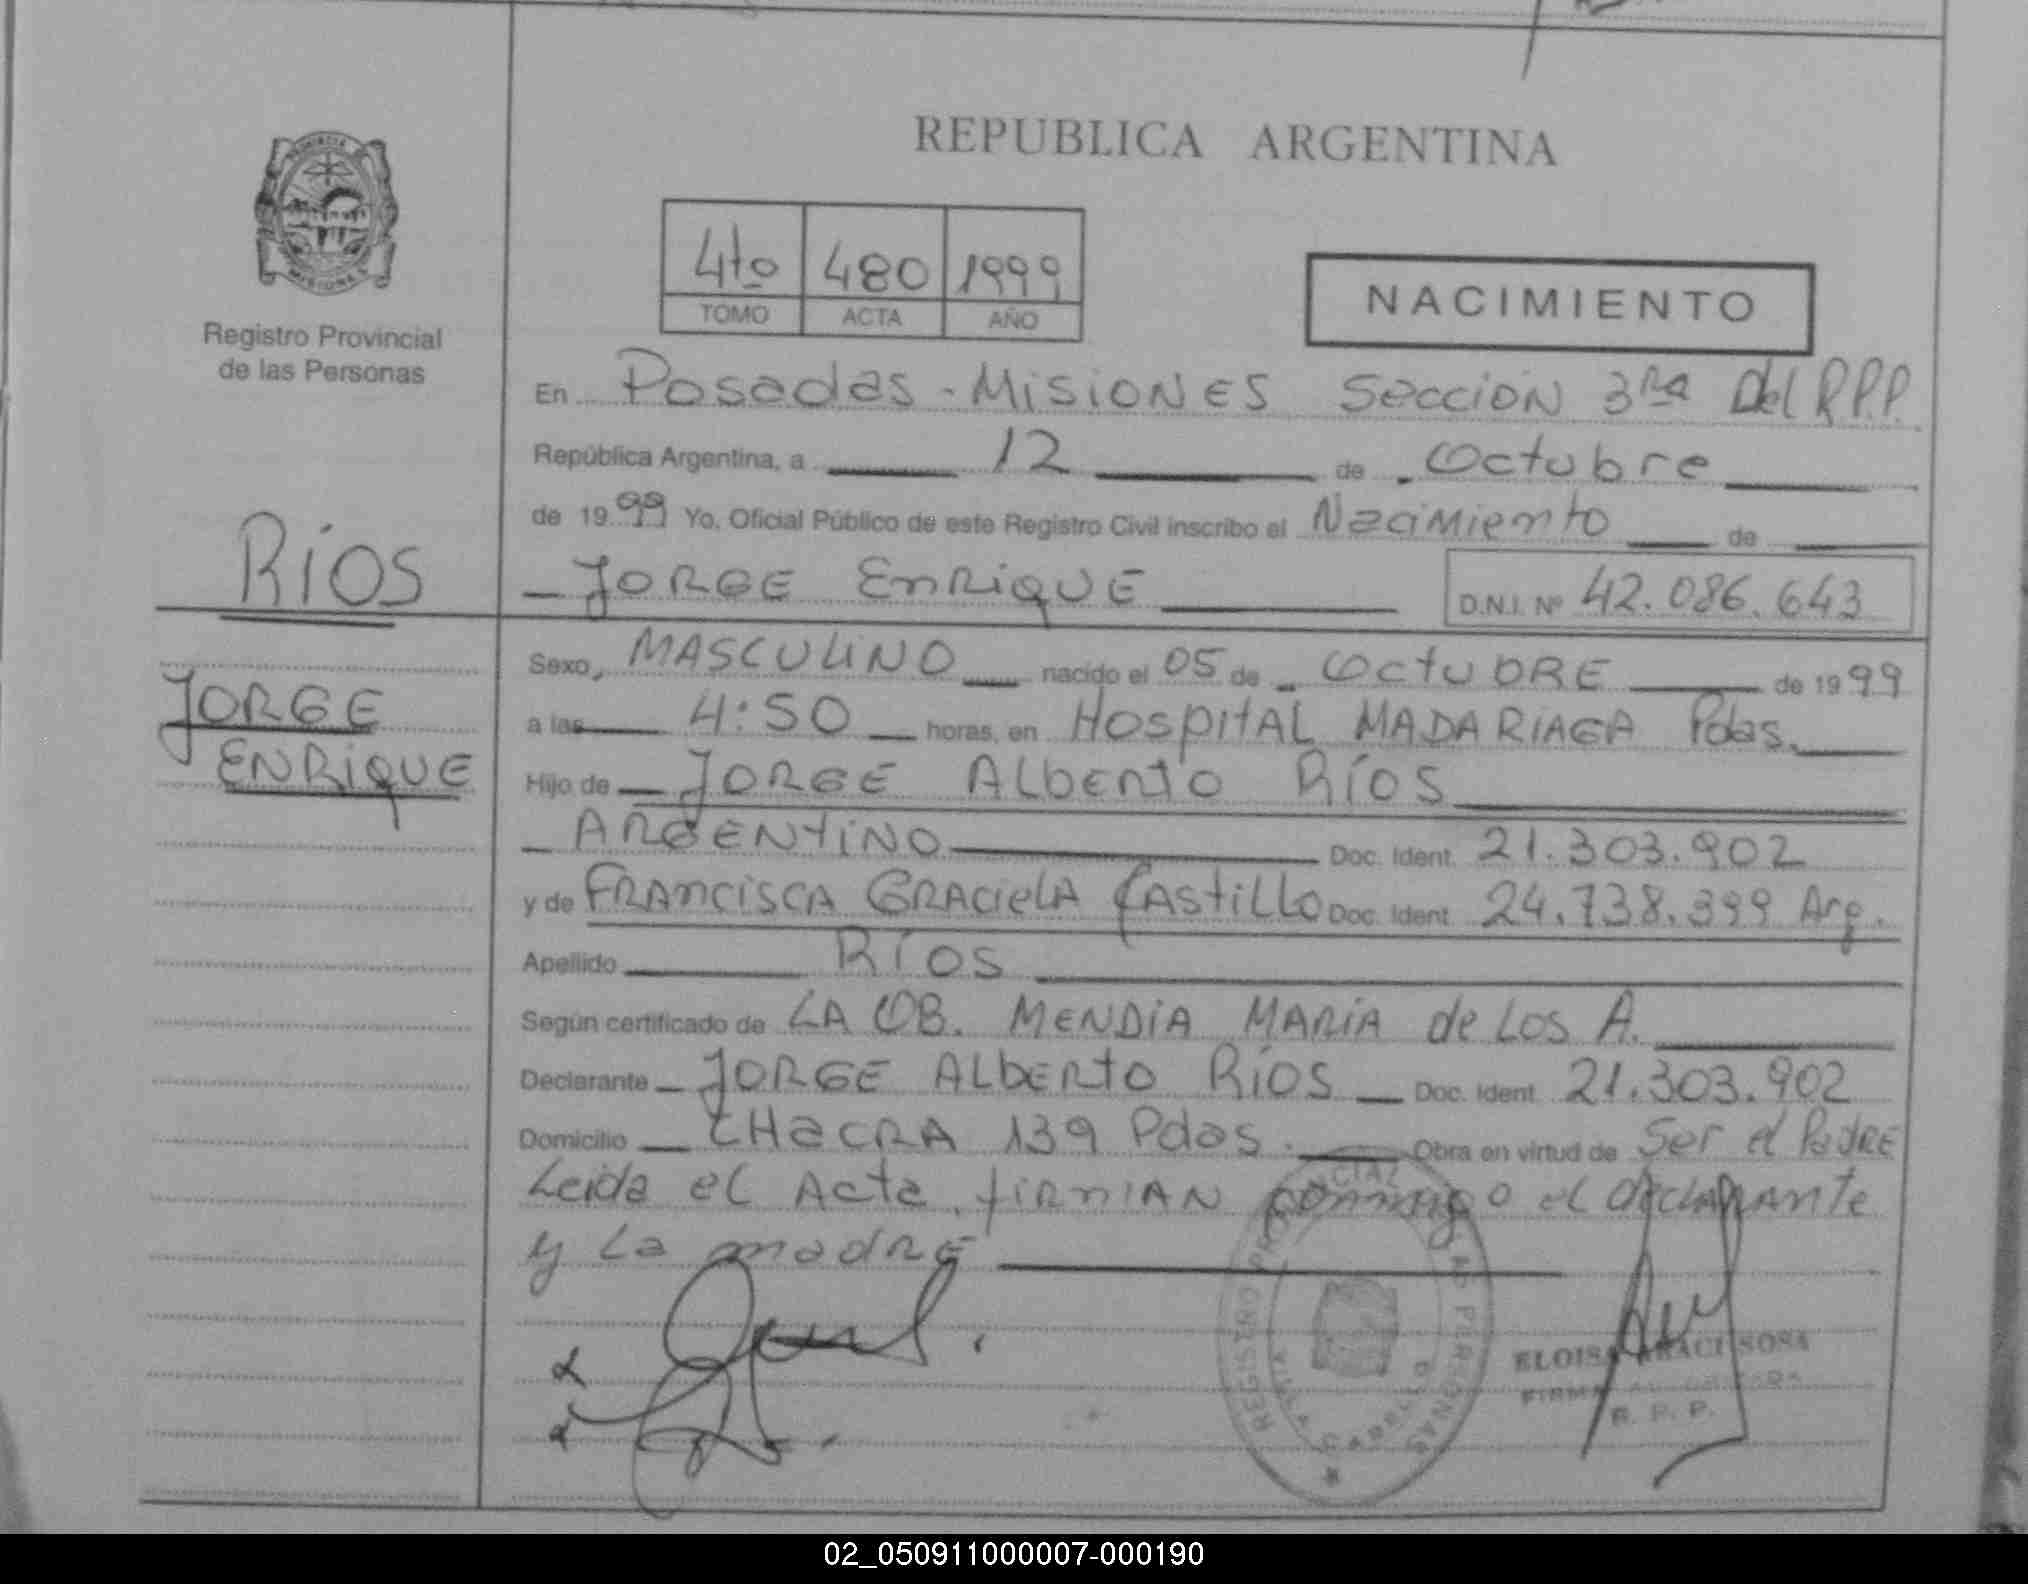 REPUBLICA ARGENTINA
PROVINCIA
MISIONES
4to 480 1999
TOMO ACTA AÑO
NACIMIENTO
Registro Provincial
de las Personas
En Posadas - Misiones Sección 3ra Del R.P.P.
República Argentina, a 12 de Octubre
de 1999 Yo, Oficial Público de este Registro Civil inscribo el Nacimiento de
RÍOS
JORGE ENRIQUE D.N.I. Nº 42.086.643
Sexo, MASCULINO nacido el 05 de Octubre de 1999
JORGE
ENRIQUE
a las 4:50 horas, en Hospital MADARIAGA Pdas.
Hijo de JORGE ALBERTO RÍOS
ARGENTINO Doc. Ident. 21.303.902
y de FRANCISCA GRACIELA CASTILLO Doc. Ident. 24.738.399 Arg.
Apellido RÍOS
Según certificado de LA OB. MENDIA MARÍA de LOS A.
Declarante JORGE ALBERTO RÍOS Doc. Ident. 21.303.902
Domicilio CHACRA 139 Pdas. Obra en virtud de Ser el Padre
Leída el Acta, firman conmigo el declarante
y La madre
ELOISA ARACI SOSA
FIRMA AUTORIZADA
R. P. P.
02_050911000007-000190